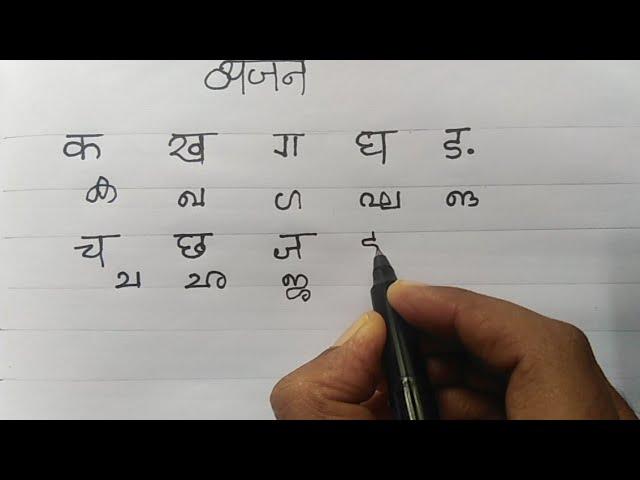 व्यजन
क ख ग घ ङ
ക ഖ ഗ ഘ ങ
च छ ज
ച ഛ ജ